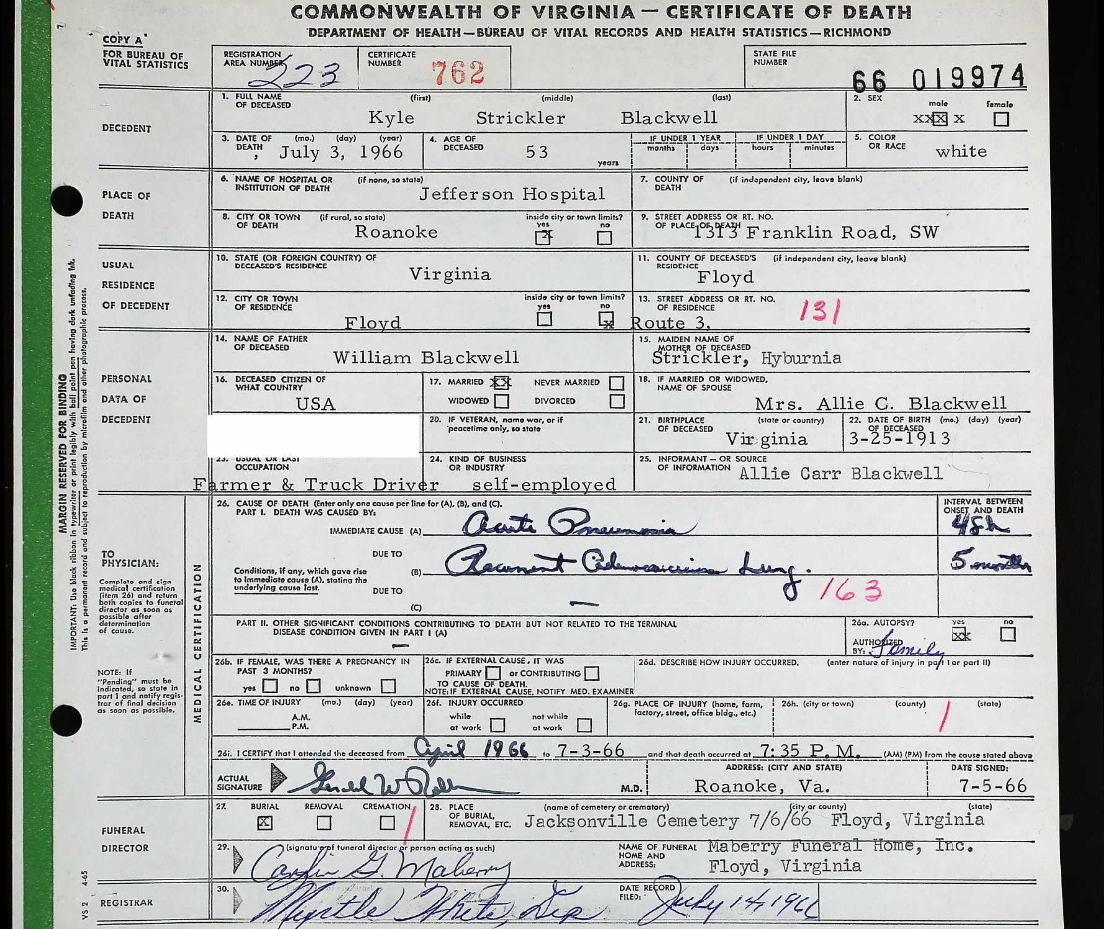 COMMONWEALTH OF VIRGINIA — CERTIFICATE OF DEATH
DEPARTMENT OF HEALTH—BUREAU OF VITAL RECORDS AND HEALTH STATISTICS—RICHMOND
COPY A
FOR BUREAU OF VITAL STATISTICS
REGISTRATION AREA NUMBER 223
CERTIFICATE NUMBER 762
STATE FILE NUMBER 66 019974
DECEDENT
1. FULL NAME OF DECEASED (first) (middle) (last)
Kyle Strickler Blackwell
2. SEX male female
xx x x
3. DATE OF DEATH (mo.) (day) (year)
, July 3, 1966
4. AGE OF DECEASED 53 years
IF UNDER 1 YEAR months days
IF UNDER 1 DAY hours minutes
5. COLOR OR RACE white
PLACE OF DEATH
6. NAME OF HOSPITAL OR INSTITUTION OF DEATH (if none, so state)
Jefferson Hospital
7. COUNTY OF DEATH (if independent city, leave blank)
8. CITY OR TOWN OF DEATH (if rural, so state)
Roanoke
inside city or town limits? yes x no
9. STREET ADDRESS OR RT. NO. OF PLACE OF DEATH
1313 Franklin Road, SW
USUAL RESIDENCE OF DECEDENT
10. STATE (OR FOREIGN COUNTRY) OF DECEASED'S RESIDENCE
Virginia
11. COUNTY OF DECEASED'S RESIDENCE (if independent city, leave blank)
Floyd
12. CITY OR TOWN OF RESIDENCE
Floyd
inside city or town limits? yes no x
13. STREET ADDRESS OR RT. NO. OF RESIDENCE
Route 3,
131
PERSONAL DATA OF DECEDENT
14. NAME OF FATHER OF DECEASED
William Blackwell
15. MAIDEN NAME OF MOTHER OF DECEASED
Strickler, Hyburnia
16. DECEASED CITIZEN OF WHAT COUNTRY
USA
17. MARRIED xx NEVER MARRIED
WIDOWED DIVORCED
18. IF MARRIED OR WIDOWED, NAME OF SPOUSE
Mrs. Allie C. Blackwell
20. IF VETERAN, name war, or if peacetime only, so state
21. BIRTHPLACE OF DECEASED (state or country)
Virginia
22. DATE OF BIRTH OF DECEASED (mo.) (day) (year)
3-25-1913
23. USUAL OR LAST OCCUPATION
Farmer & Truck Driver
24. KIND OF BUSINESS OR INDUSTRY
self-employed
25. INFORMANT — OR SOURCE OF INFORMATION
Allie Carr Blackwell
MARGIN RESERVED FOR BINDING
IMPORTANT: Use black ribbon in typewriter or print legibly with ball point pen having dark unfading ink.
This is a permanent record and subject to reproduction by microfilm and other photographic process.
TO PHYSICIAN:
Complete and sign medical certification (item 26) and return both copies to funeral director as soon as possible after determination of cause.
NOTE: If "Pending" must be indicated, so state in part I and notify registrar of final decision as soon as possible.
MEDICAL CERTIFICATION
26. CAUSE OF DEATH (Enter only one cause per line for (A), (B), and (C).
PART I. DEATH WAS CAUSED BY:
INTERVAL BETWEEN ONSET AND DEATH
IMMEDIATE CAUSE (A) Acute Pneumonia 48h
Conditions, if any, which gave rise to immediate cause (A), stating the underlying cause last.
DUE TO (B) Recurrent Adenocarcinoma Lung. 5 months
163
DUE TO (C) —
PART II. OTHER SIGNIFICANT CONDITIONS CONTRIBUTING TO DEATH BUT NOT RELATED TO THE TERMINAL DISEASE CONDITION GIVEN IN PART I (A)
—
26a. AUTOPSY? yes xx no
AUTHORIZED BY: Family
26b. IF FEMALE, WAS THERE A PREGNANCY IN PAST 3 MONTHS?
yes no unknown
26c. IF EXTERNAL CAUSE, IT WAS
PRIMARY or CONTRIBUTING
TO CAUSE OF DEATH.
NOTE: IF EXTERNAL CAUSE, NOTIFY MED. EXAMINER
26d. DESCRIBE HOW INJURY OCCURRED. (enter nature of injury in part I or part II)
26e. TIME OF INJURY (mo.) (day) (year)
A.M.
P.M.
26f. INJURY OCCURRED
while at work not while at work
26g. PLACE OF INJURY (home, farm, factory, street, office bldg., etc.)
26h. (city or town) (county) (state)
26i. I CERTIFY that I attended the deceased from April 1966 to 7-3-66 and that death occurred at 7:35 P.M. (AM) (PM) from the cause stated above
ACTUAL SIGNATURE M.D.
ADDRESS: (CITY AND STATE)
Roanoke, Va.
DATE SIGNED:
7-5-66
FUNERAL DIRECTOR
27. BURIAL REMOVAL CREMATION
x
28. PLACE OF BURIAL, REMOVAL, ETC. (name of cemetery or crematory) (city or county) (state)
Jacksonville Cemetery 7/6/66 Floyd, Virginia
29. (signature of funeral director or person acting as such)
G. Maberry
NAME OF FUNERAL HOME AND ADDRESS:
Maberry Funeral Home, Inc.
Floyd, Virginia
REGISTRAR
30. Myrtle White, Dep
DATE RECORD FILED: July 14, 1966
VS 2 4-65